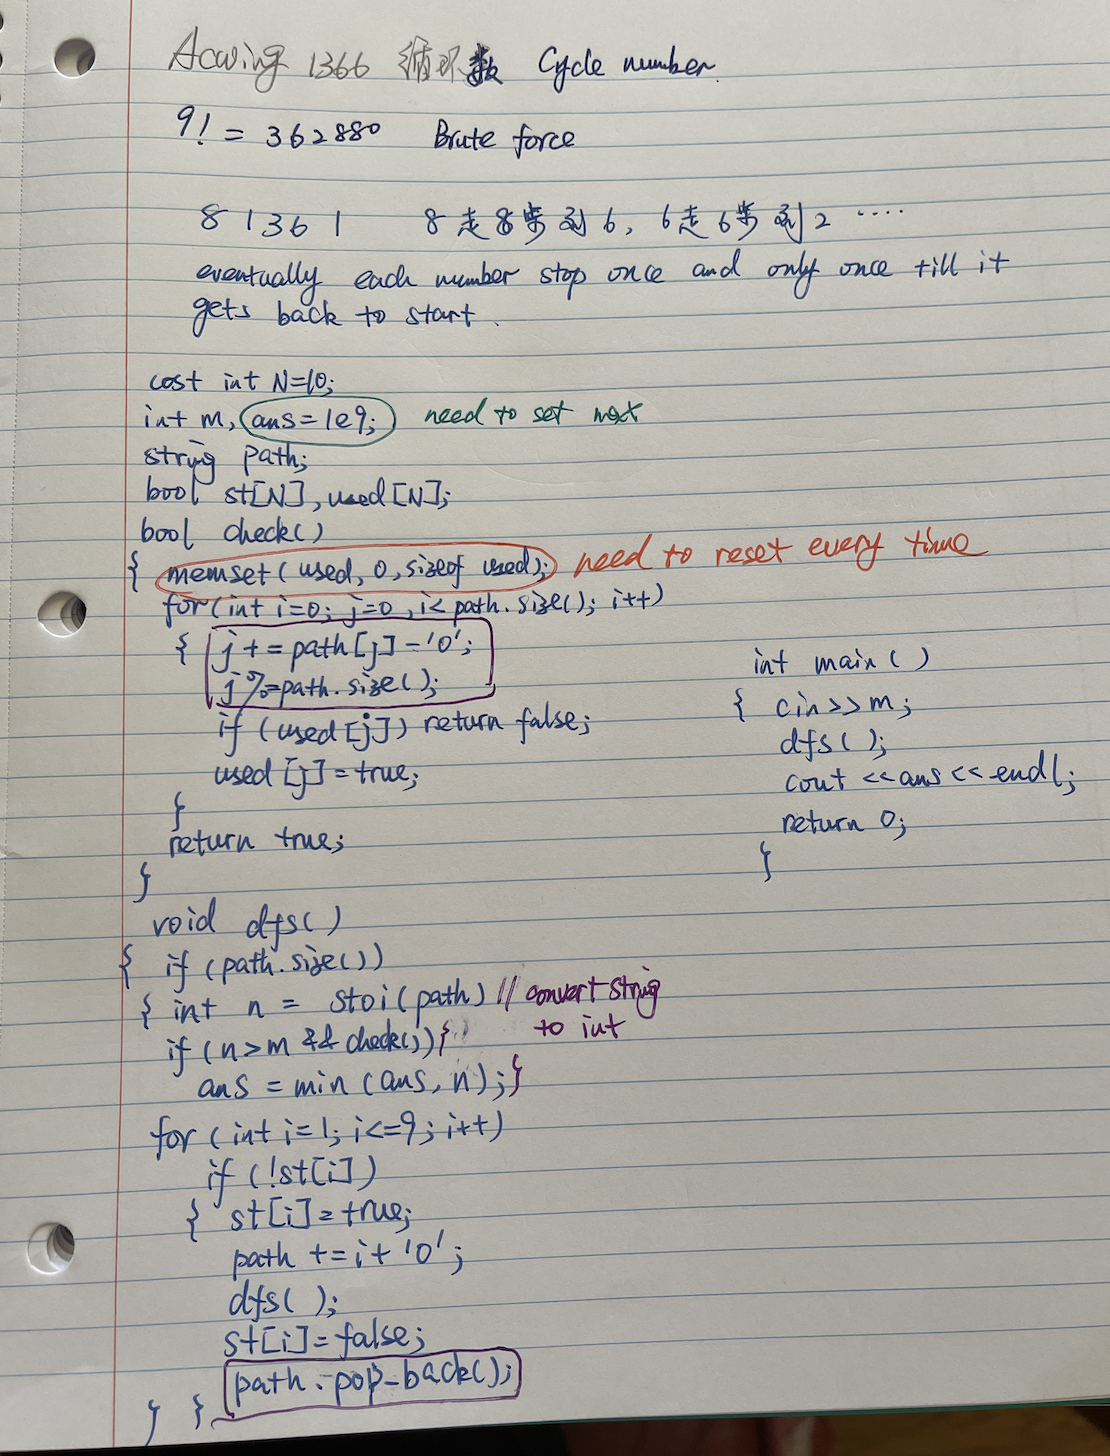 Acwing 1366 循环数 Cycle number.
9! = 362880 Brute force
8 1 3 6 1 8走8步到6, 6走6步到2 ····
eventually each number stop once and only once till it
gets back to start.
cost int N=10;
int m, ans=1e9; need to set max
string path;
bool st[N], used[N];
bool check()
{ memset( used, 0, sizeof used); need to reset every time
for(int i=0; j=0, i< path.size(); i++)
{ j += path[j] - '0';
j %=path.size();
if (used[j]) return false;
used[j]=true;
}
return true;
}
void dfs()
{ if (path.size())
{ int n = stoi(path) // convert string
to int
if (n>m && check()){
ans = min (ans, n);}
for (int i=1; i<=9; i++)
if (!st[i])
{ st[i]=true;
path += i+ '0';
dfs( );
st[i]=false;
path.pop-back();
} }
int main( )
{ cin>>m;
dfs( );
cout <<ans<<endl;
return 0;
}